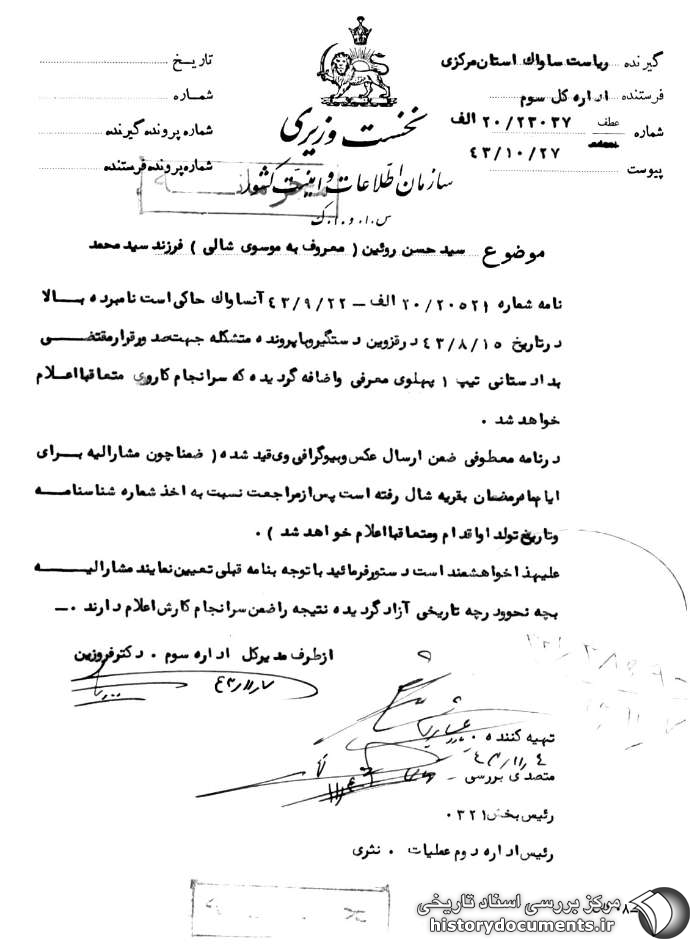 گیرنده ریاست ساواک استان مرکزی
فرستنده اداره کل سوم
شماره عطف ۲۰/۲۳۰۳۷ الف
پیوست ۴۳/۱۰/۲۷
تاریخ
شماره
شماره پرونده گیرنده
شماره پرونده فرستنده
نخست وزیری
سازمان اطلاعات و امنیت کشور
س.ا.و.ا.ک
موضوع سید حسن روئین ( معروف به موسوی شالی ) فرزند سید محمد
نامه شماره ۲۰/۲۰۵۲۱ الف – ۴۳/۹/۲۲ آنساواک حاکی است نامبرده بالا
در تاریخ ۴۳/۸/۱۵ در قزوین دستگیر و با پرونده متشکله جهت صدور قرار مقتضی
بدادستانی تیپ ۱ پهلوی معرفی و اضافه گردیده که سرانجام کار وی متعاقبا اعلام
خواهد شد .
در نامه معطوفی ضمن ارسال عکس و بیوگرافی وی قید شده ( ضمنا چون مشارالیه برای
ایام ماه رمضان بقریه شال رفته است پس از مراجعت نسبت به اخذ شماره شناسنامه
و تاریخ تولد او اقدام و متعاقبا اعلام خواهد شد ) .
علیهذا خواهشمند است دستور فرمائید با توجه بنامه قبلی تعیین نمایند مشارالیه
بچه نحو و در چه تاریخی آزاد گردیده نتیجه را ضمن سرانجام کارش اعلام دارند .–
از طرف مدیر کل اداره سوم . دکتر فروزین
تهیه کننده .
۴۳/۱۱/۴
متصدی بررسی –
رئیس بخش ۳۲۱ .
رئیس اداره دوم عملیات . نثری
مرکز بررسی اسناد تاریخی
historydocuments.ir